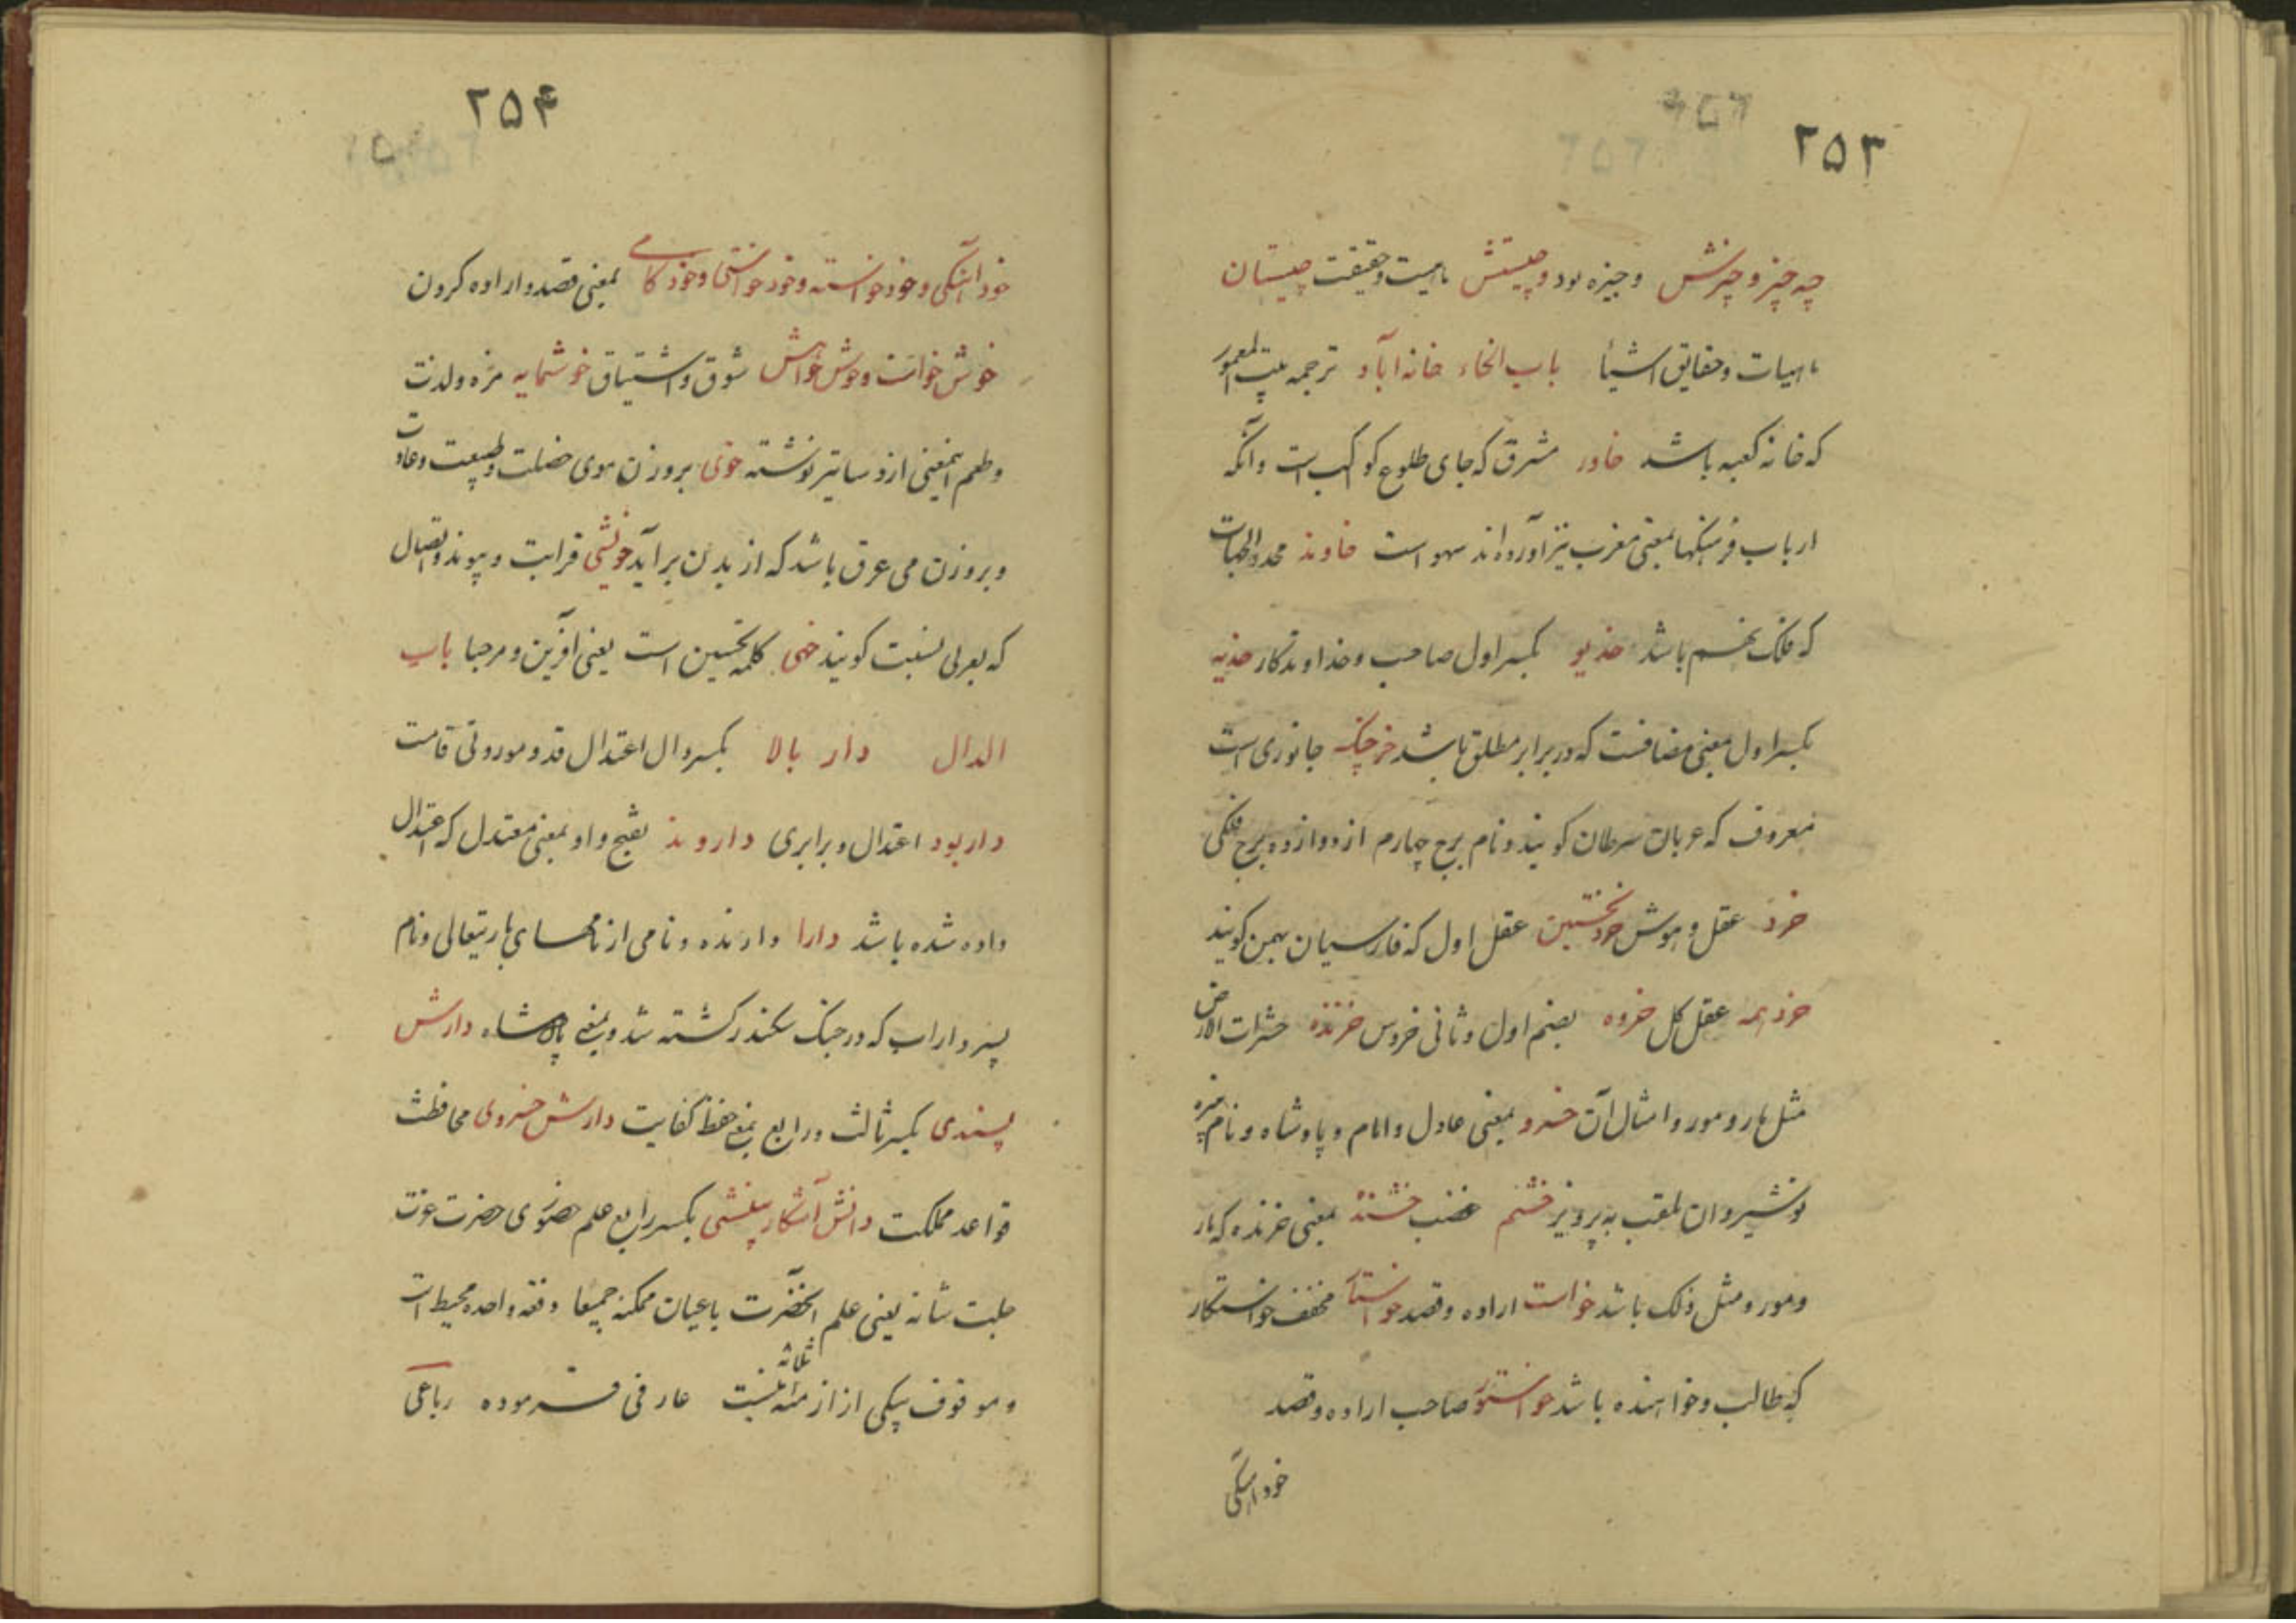 ۲۵۳
چه چیز و چیزش و چیزه بود و چیستش ماهیت و حقیقت چیستان
ماهیات و حقایق اشیا باب الخاء خانه آباد ترجمه بیت المعمور
که خانه کعبه باشد خاور مشرق که جای طلوع کوکب است و آنکه
ارباب فرهنگها بمعنی مغرب نیز آورده‌اند سهو است خاوند محدد الجهات
که فلک نهم باشد خدیو بکسر اول صاحب و خداوندکار خدیه
بکسر اول معنی مضافست که در برابر مطلق باشد خرچنگ جانوری است
معروف که عربان سرطان کویند و نام برج چهارم از دوازده برج فلکی
خرد عقل و هوش خرد نخستین عقل اول که فارسیان بهمن کویند
خرد همه عقل کل خروه بضم اول و ثانی خروس خزنده حشرات الارض
مثل مار و مور و امثال آن خسرو بمعنی عادل و امام و پادشاه و نام نبیره
نوشیروان ملقب به پرویز خشم غضب خشنده بمعنی خزنده که مار
و مور و مثل ذلک باشد خواست اراده و قصد خواستار مخفف خواستکار
که طالب و خواهنده باشد خواستور صاحب اراده و قصد
خود آهنکی
۲۵۴
خود آهنکی و خود خواسته و خود خواستی و خود کامی بمعنی قصد و اراده کردن
خوش خواست و خوش خواهش شوق و اشتیاق خوشمایه مزه و لذت
و طعم اینمعنی از دساتیر نوشته خوی بروزن موی خصلت و طبیعت و عادت
و بروزن می عرق باشد که از بدن برآید خویشی قرابت و پیوند و اتصال
که بعربی نسبت کویند خهی کلمه تحسین است یعنی آفرین و مرحبا باب
الدال دار بالا بکسر دال اعتدال قد و موزونی قامت
داربود اعتدال و برابری داروند بفتح واو بمعنی معتدل که اعتدال
داده شده باشد دارا دارنده و نامی از نامهای باریتعالی و نام
پسر داراب که در جنک سکندر کشته شد و بمعنی پادشاه دارش
پسندی بکسر ثالث و رابع بمعنی حفظ کفایت دارش خسروی محافظت
قواعد مملکت دانش آشکار بینشی بکسر رابع علم حضوری حضرت عزت
جلت شانه یعنی علم آنحضرت باعیان ممکنه جمیعا دفعه واحده محیط است
و موقوف بیکی از ازمنه ثلاثه نیست عارفی فرموده رباعی